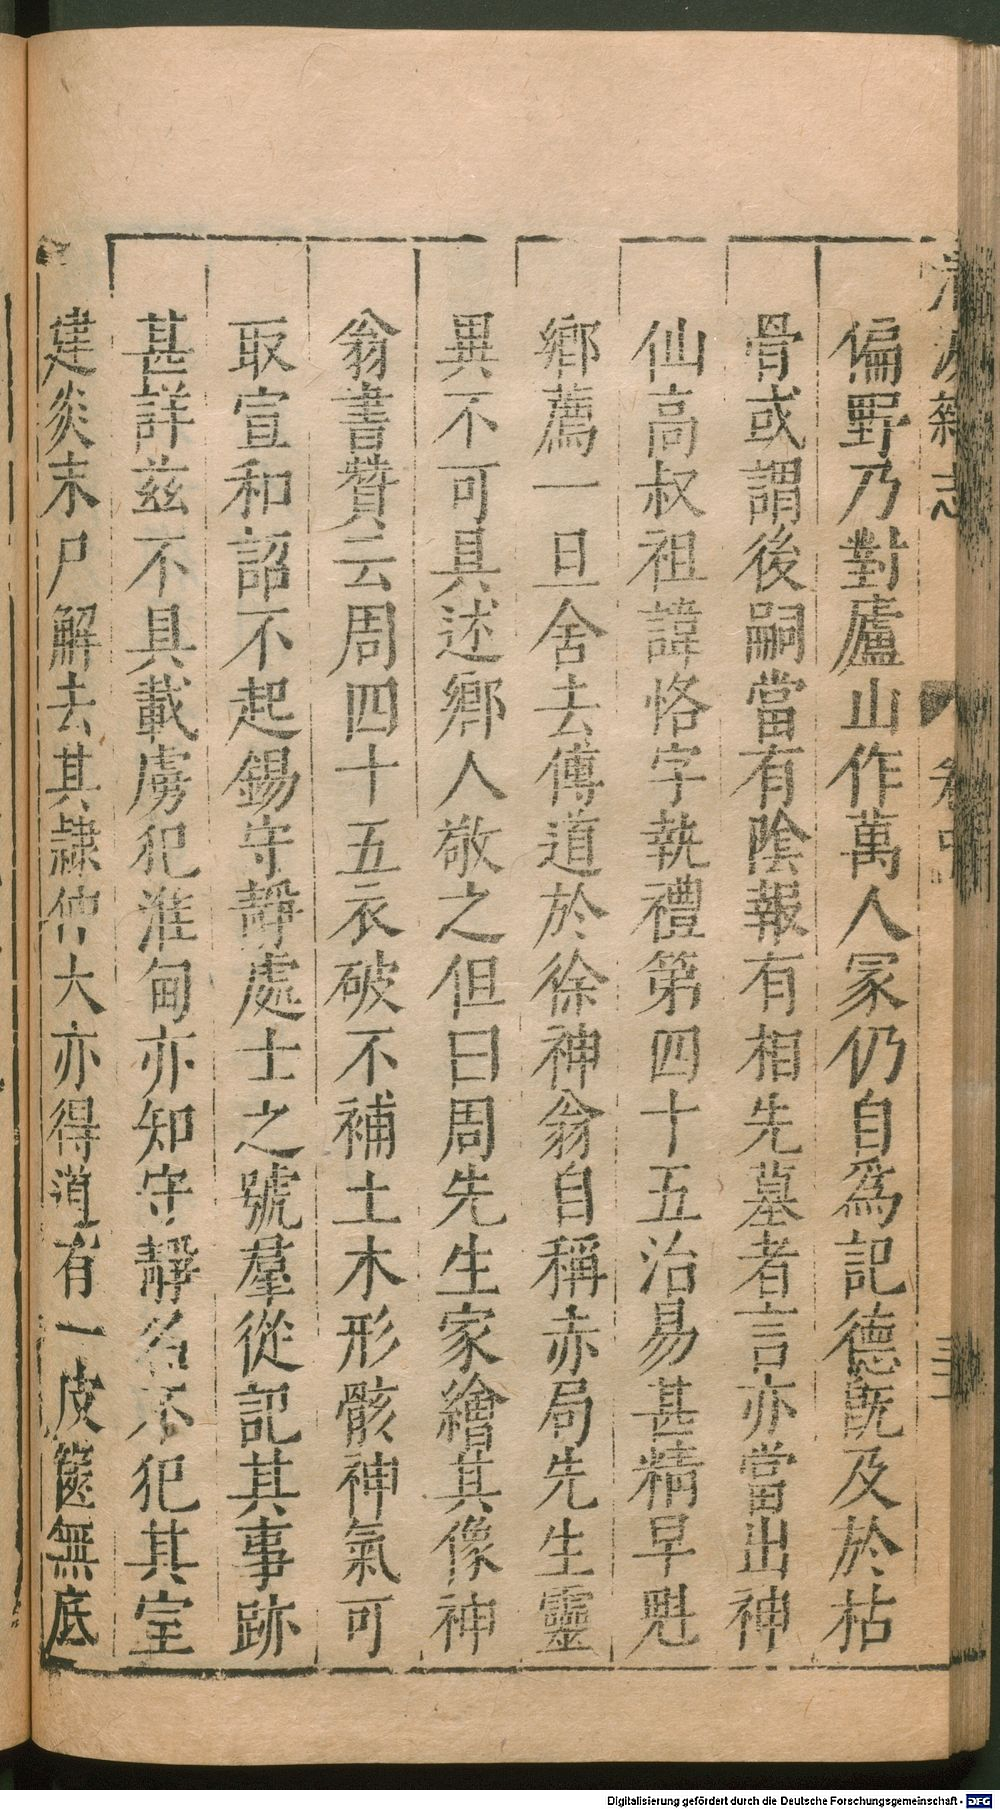 清波雜志 卷中 三
偏野乃對廬山作萬人冢仍自爲記德旣及於枯
骨或謂後嗣當有陰報有相先墓者言亦當出神
仙高叔祖諱恪字執禮第四十五治易甚精早魁
鄉薦一旦舍去傳道於徐神翁自稱赤局先生靈
異不可具述鄉人敬之但曰周先生家繪其像神
翁書贊云周四十五衣破不補土木形骸神氣可
取宣和詔不起錫守靜處士之號羣從記其事跡
甚詳茲不具載虜犯淮甸亦知守靜名不犯其室
建炎末尸解去其隷仲大亦得道有一皮篋無底
Digitalisierung gefördert durch die Deutsche Forschungsgemeinschaft - DFG